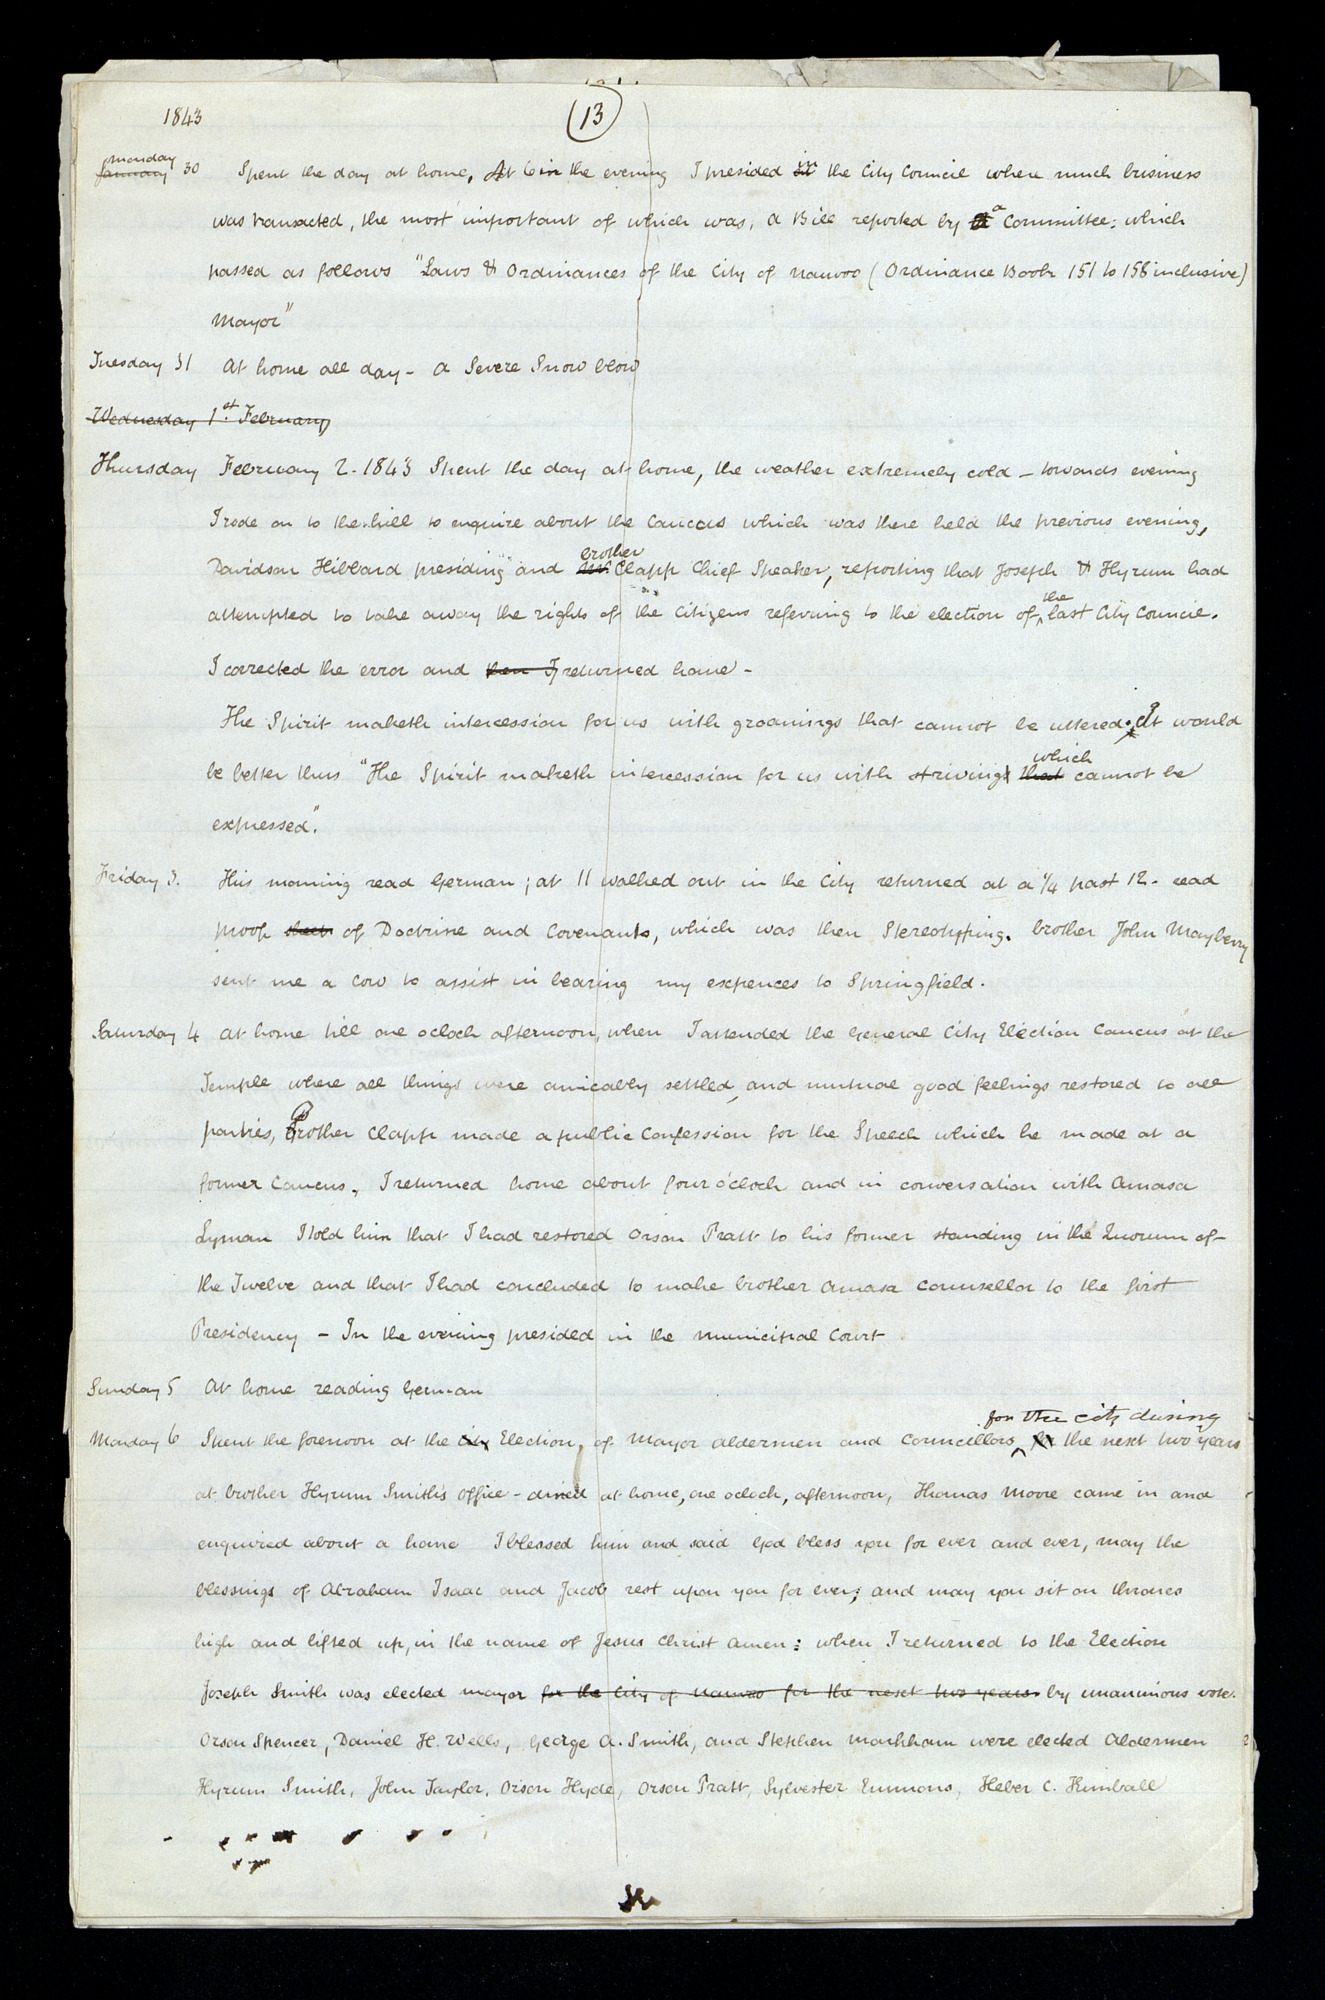 1843
(13)
monday
January 30 Spent the day at home, At 6 in the evening I presided in the City Council where much business
was transacted, the most important of which was, a Bill reported by a Committee; which
passed as follows "Laws & Ordinances of the City of Nauvoo (Ordinance Book 151 to 158 inclusive)
Mayor"
Tuesday 31 At home all day - a Severe Snow blow
Wednesday 1st. February
Thursday February 2. 1843 Spent the day at home, the weather extremely cold - towards evening
I rode on to the hill to enquire about the Caucus which was there held the previous evening,
brother
Davidson Hibbard presiding and Mr. Clapp Chief Speaker, reporting that Joseph & Hyrum had
the
attempted to take away the rights of the Citizens referring to the election of ‸ last City Council.
I corrected the error and then I returned home -
The Spirit maketh intercession for us with groanings that cannot be uttered. It would
which
be better thus "The Spirit maketh intercession for us with strivings that cannot be
expressed."
Friday 3. This morning read German; at 11 walked out in the City returned at a ¼ past 12. read
proof sheets of Doctrine and Covenants, which was then Stereotyping. brother John Mayberry
sent me a cow to assist in bearing my expences to Springfield.
Saturday 4 At home till one oclock afternoon, when I attended the General City Election Caucus at the
Temple where all things were amicably settled, and mutual good feelings restored to all
parties, Brother Clapp made a public Confession for the Speech which he made at a
former Caucus. I returned home about four o'clock and in conversation with Amasa
Lyman I told him that I had restored Orson Pratt to his former standing in the Quorum of
the Twelve and that I had concluded to make brother Amasa Counsellor to the first
Presidency - In the evening presided in the Municipal Court
Sunday 5 At home reading German
for the city during
Monday 6 Spent the forenoon at the City Election, of Mayor Aldermen and Councillors ‸ for the next two years
at brother Hyrum Smith's office - dined at home, one oclock, afternoon, Thomas Moore came in and
enquired about a home I blessed him and said God bless you for ever and ever, may the
blessings of Abraham Isaac and Jacob rest upon you for ever; and may you sit on thrones
high and lifted up, in the name of Jesus Christ Amen: when I returned to the Election
Joseph Smith was elected mayor for the City of Nauvoo for the next two years by unanimous vote.
Orson Spencer, Daniel H. Wells, George A. Smith, and Stephen Markham were elected Aldermen
Hyrum Smith, John Taylor, Orson Hyde, Orson Pratt, Sylvester Emmons, Heber C. Kimball